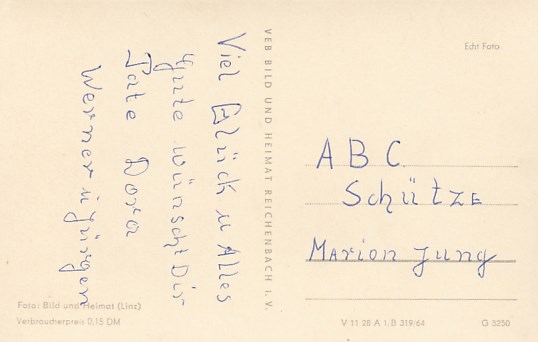 Viel Glück u Alles
Gute wünscht Dir
Tate Dora
Werner u Jürgen
VEB BILD UND HEIMAT REICHENBACH I. V.
Echt Foto
ABC
Schütze
Marion Jung
Foto: Bild und Heimat (Linz)
Verbraucherpreis 0,15 DM
V 11 28 A 1. B 319/64
G 5250